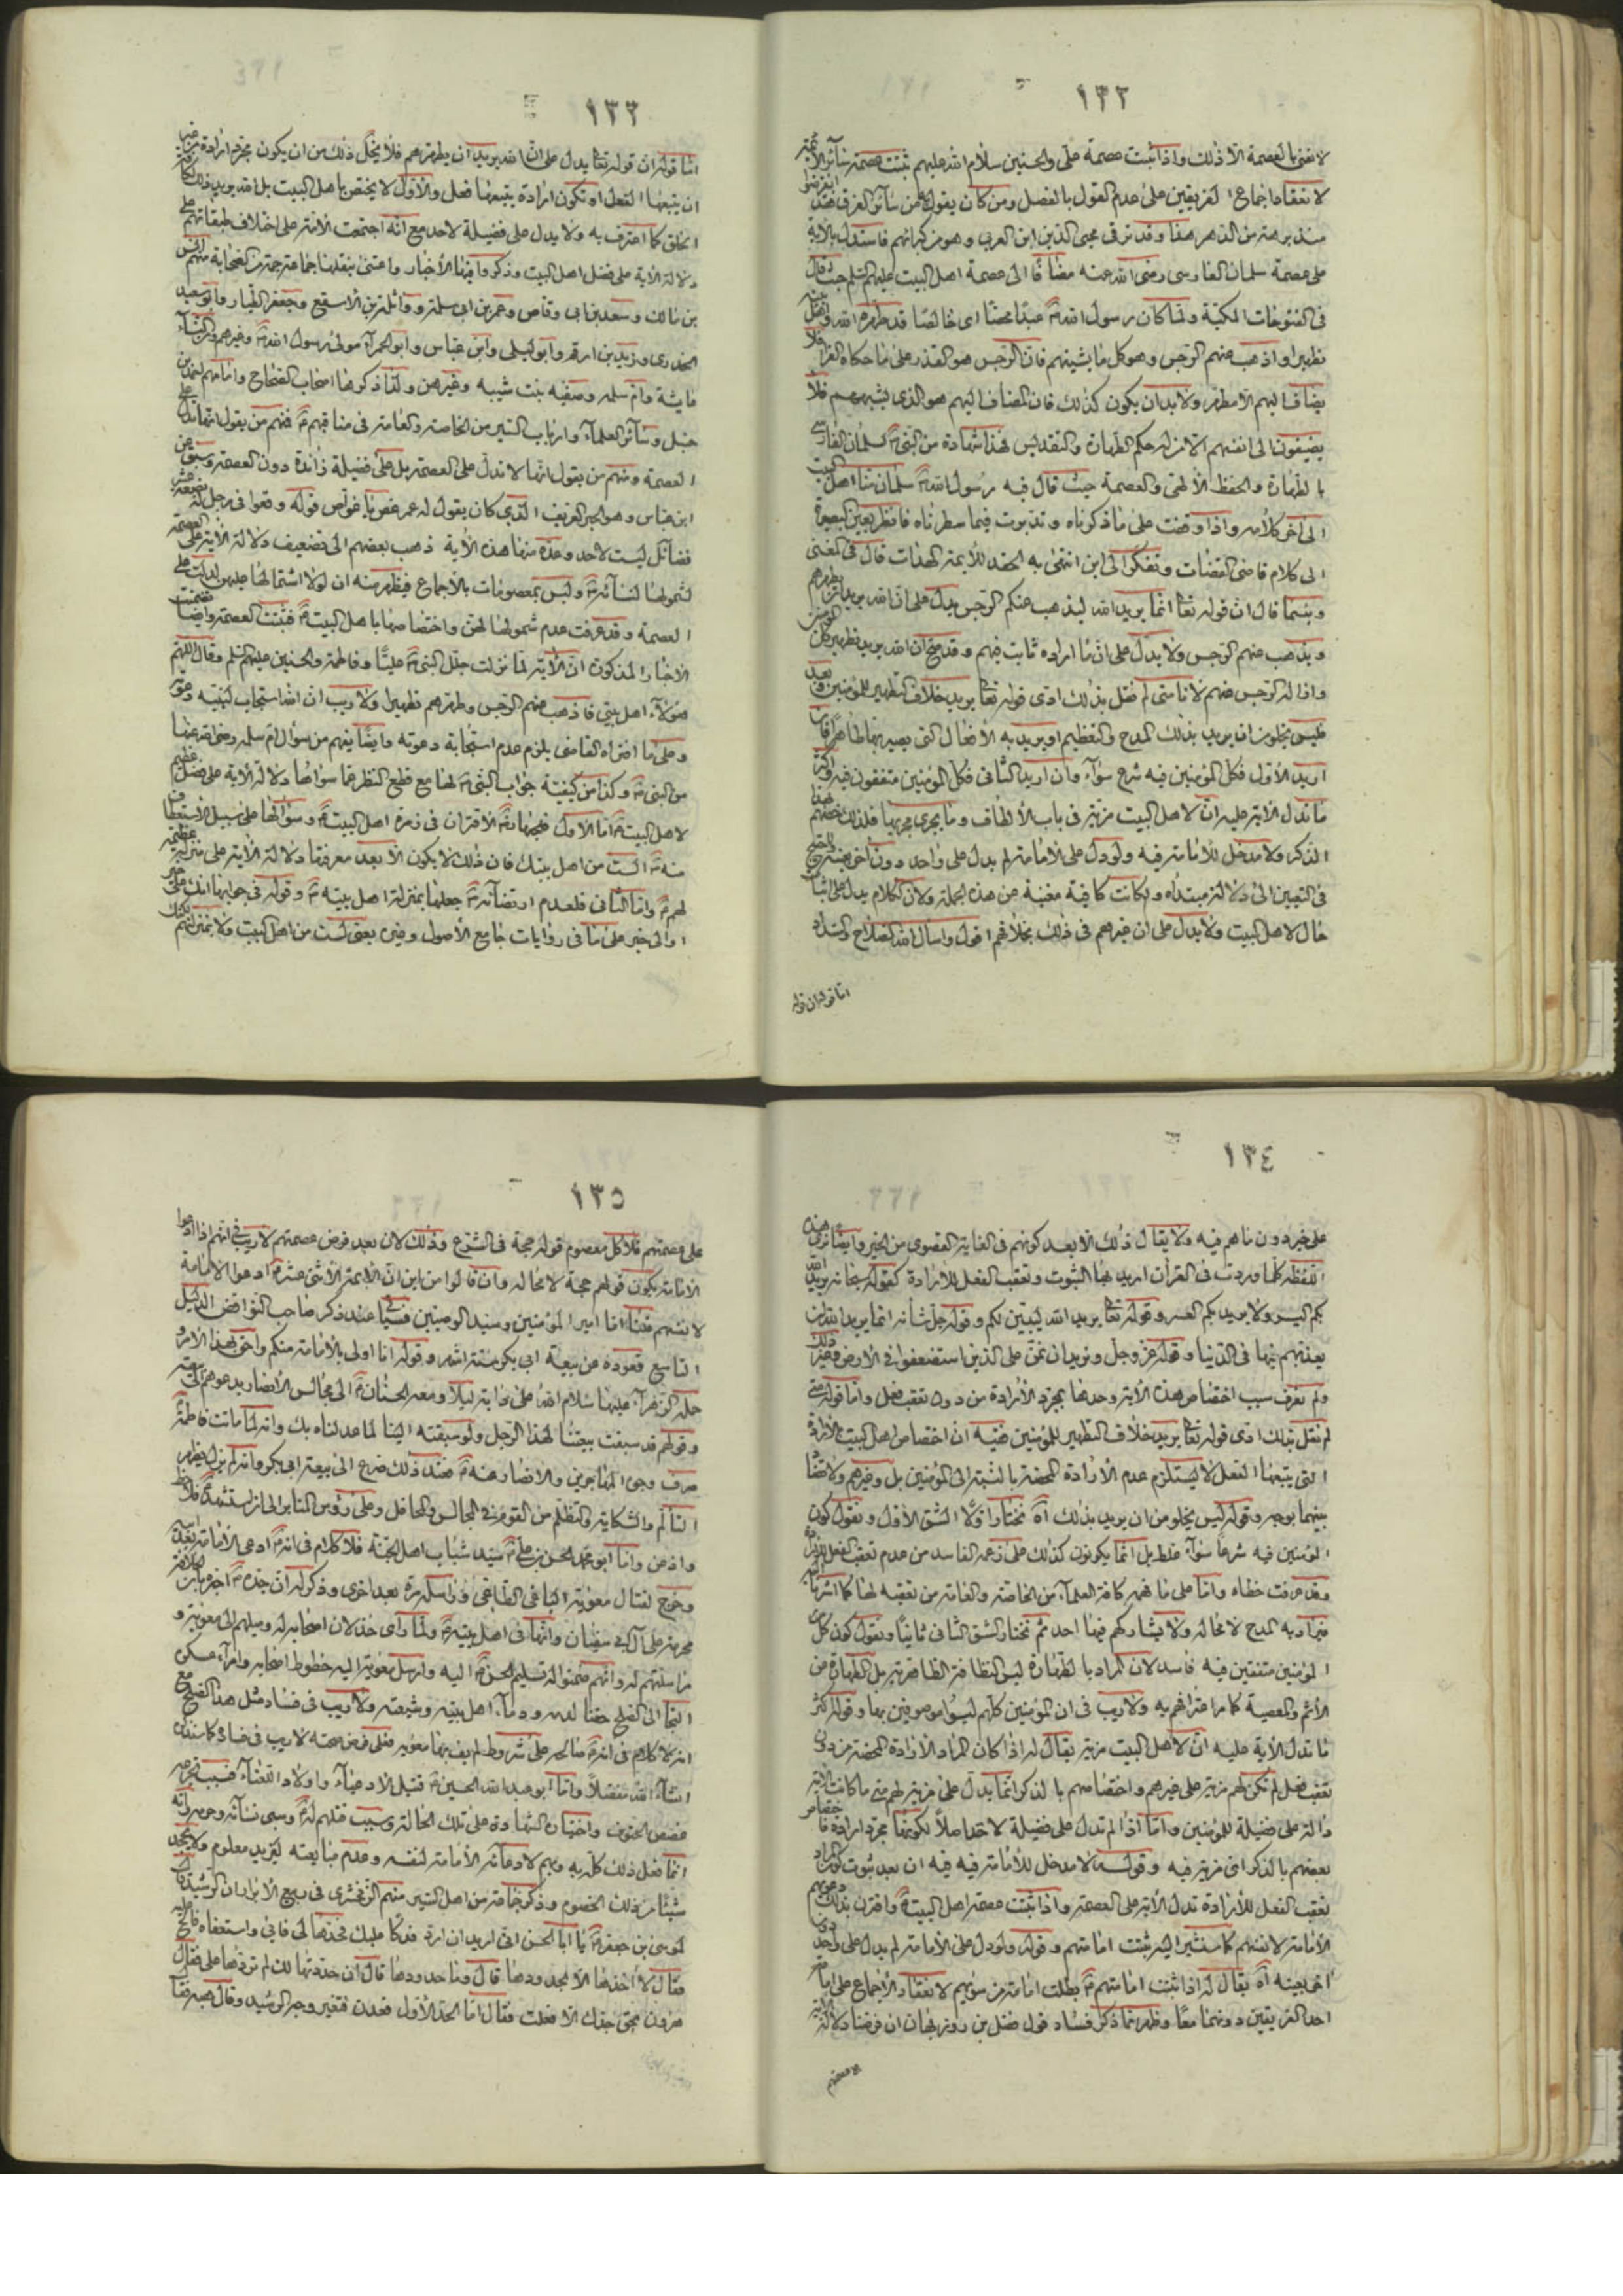 ١٣٢
لا نعنى بالعصمة الا ذلك واذا ثبتت عصمة على والحسنين سلام الله عليهم ثبتت عصمة سائر الائمة
لانعقاد اجماع الفريقين على عدم القول بالفصل ومن كان يقول من سائر الفرق فقد انقرضوا
منذ برهة من الدهر هذا وقد ترقى محيى الدين ابن العربى وهو من كبرائهم فاستدل بالاية
على عصمة سلمان الفارسى رضى الله عنه مضافا الى عصمة اهل البيت عليهم السلم حيث قال
فى الفتوحات المكية ولما كان رسول الله عبدا محضا اى خالصا قد طهره الله واهل بيته
تطهيرا واذهب عنهم الرجس وهو كل ما يشينهم فان الرجس هو القذر على ما حكاه الفرا فلا
يضاف اليهم الا مطهر ولا بد ان يكون كذلك فان المضاف اليهم هو الذى يشبههم فلا
يضيفون الى انفسهم الا من له حكم الطهارة والتقديس فهذا شهادة من النبى لسلمان الفارسى
بالطهارة والحفظ الالهى والعصمة حيث قال فيه رسول الله سلمان منا اهل البيت
الى اخر كلامه واذا وقفت على ما ذكرناه وتدبرت فيما سطرناه فانظر بعين البصيرة
الى كلام قاضى القضات وتفكر الى اين انتهى به الحقد للائمة الهداة قال فى المغنى
وبيتما قال ان قوله تعا انما يريد الله ليذهب عنكم الرجس يدل على ان الله يريد تطهيرهم
ويذهب عنهم الرجس ولا يدل على ان ما اراده ثابت فيهم وقد صح ان الله يريد تطهير كل المؤمنين
واذالة الرجس عنهم لانا متى لم نقل بذلك ادى قوله تعا يريد خلاف التطهير للمؤمنين وبعد
فليس يخلو من ان يريد بذلك المدح والتعظيم او يريد به الافعال التى يصير بها طاهرا فان
اريد الاول فكل المؤمنين فيه شرع سواء وان اريد الثانى فكل المؤمنين متفقون فيه واكثر
ما تدل الاية عليه ان لاهل البيت مزية فى باب الالطاف وما يجرى مجريها فلذلك خصهم بهذا
الذكر ولا مدخل للامامة فيه ولو دل على الامامة لم يدل على واحد دون اخر بعينه
فى التعيين الى دلالة مبتداه ولكانت كافية مغنية عن هذه الجملة ولان الكلام يدل على اثبات
حال لاهل البيت ولا يدل على ان غيرهم فى ذلك بخلافهم اقول واسال الله الصلاح والسداد
اما قوله ان قوله
١٣٣
اما قوله ان قوله تعا يدل على ان الله يريد ان يطهرهم فلا يخلو ذلك من ان يكون مجرد ارادة من غير
ان يتبعها الفعل او تكون ارادة يتبعها فعل والاول لا يختص باهل البيت بل الله يريد ذلك
الخلق كما اعترف به ولا يدل على فضيلة لاحد مع انه اجتمعت الامة على اختلاف طبقاتهم على
دلالة الاية على فضل اهل البيت وذكروا فيها الاخبار واعتنى بنقلها جماعة جمة من الصحابة منهم انس
بن مالك وسعد بن ابى وقاص وعمر بن ابى سلمة وواثلة بن الاسقع وجعفر الطيار وابو سعيد
الخدرى وزيد بن ارقم وابو ليلى وابن عباس وابو الحمراء مولى رسول الله وغيرهم والنساء
عايشة وام سلمه وصفيه بنت شيبه وغيرهن وكذا ذكرها اصحاب الصحاح وامامهم احمد بن
حنبل وسائر العلماء وارباب السير من الخاصة والعامة فى مناقبهم فمنهم من يقول انها تدل على
العصمة ومنهم من يقول انها لا تدل على العصمة بل على فضيلة زائدة دون العصمة وسبق عن
ابن عباس وهو الحبر العريف الذى كان يقول له عمر غص يا غواص قوله وقعوا فى رجل له بضعة عشر
فضائل ليست لاحد وعد منها هذه الاية ذهب بعضهم الى تضعيف دلالة الاية على العصمة
لشمولها لنسائه وليس بمعصومات بالاجماع فيظهر منه ان لولا اشتمالها عليهن لدلت على
العصمة وقد عرفت عدم شمولها لهن واختصاصها باهل البيت فثبتت العصمة وايضا تضمنت
الاخبار المذكورة ان الاية لما نزلت جلل النبى عليا وفاطمة والحسنين عليهم السلم وقال اللهم
هؤلاء اهل بيتى فاذهب عنهم الرجس وطهرهم تطهيرا ولا ريب ان الله استجاب لنبيه دعوته
وعلى ما افتراه القاضى يلزم عدم استجابة دعوته وايضا يفهم من سؤال ام سلمه رضى الله عنها
من النبى وكذا من كيفية جواب النبى لها مع قطع النظر عما سواها دلالة الاية على فضل عظيم
لاهل البيت اما الاول فلجهادة الاقتران فى زمرة اهل البيت وسؤالها على سبيل الاستعطاف
منه الست من اهل بيتك فان ذلك لا يكون الا بعد معرفتها دلالة الاية على منزلة عظيمة
لهم واما الثانى فلعدم ارتضائه جعلها بمنزلة اهل بيته وقوله فى جوابها انك على خير
او الى خير على ما فى روايات جامع الاصول وغيره يعنى لست من اهل البيت ولا بمنزلتهم
١٣٤
على خير دون ما هم فيه ولا يقال ذلك الا بعد كونهم فى الغاية القصوى من الخير وايضا ترى هذه
اللفظة كلما وردت فى القرآن اريد بها الثبوت وتعقب الفعل للارادة كقوله سبحانه يريد الله
بكم اليسر ولا يريد بكم العسر وقوله تعا يريد الله ليبين لكم وقوله جل شانه انما يريد الله ان
يعذبهم بها فى الدنيا وقوله عز وجل ونريد ان نمن على الذين استضعفوا فى الارض وغير ذلك
ولم نعرف سبب اختصاص هذه الاية وحدها بمجرد الارادة من دون تعقب فعل واما قوله متى
لم نقل بذلك ادى قوله تعا يريد خلاف التطهير للمؤمنين ففيه ان اختصاص اهل البيت بالارادة
التى يتبعها الفعل لا يستلزم عدم الارادة المحضة بالنسبة الى المؤمنين بل وغيرهم ولا تضاد
بينهما بوجه وقوله ليس يخلو من ان يريد بذلك اه نختار اولا الشق الاول ونقول كون
المؤمنين فيه شرعا سواء غلط بل انما يكونون كذلك على زعمه الفاسد من عدم تعقب الفعل للارادة
وقد عرفت خطاه واما على ما فهمه كافة العلماء من الخاصة والعامة من تعقبه لها كما اشرنا اليه
فيراد به المدح لا محالة ولا يشاركهم فيها احد ثم نختار الشق الثانى ثانيا ونقول كون كل
المؤمنين متفقين فيه فاسد لان المراد بالطهارة ليس النظافة الظاهرية بل الطهارة من
الاثم والمعصية كما مر اعترافهم به ولا ريب فى ان المؤمنين كلهم ليسوا موصوفين بها وقوله اكثر
ما تدل الاية عليه ان لاهل البيت مزية يقال له اذا كان المراد الارادة المحضة من دون
تعقب فعل لم تكن لهم مزية على غيرهم واختصاصهم بالذكر انما يدل على مزية لهم متى ما كانت الاية
دالة على فضيلة للمؤمنين واما اذا لم تدل على فضيلة لاحد اصلا لكونها مجرد ارادة فاختصاص
بعضهم بالذكر اى مزية فيه وقوله لا مدخل للامامة فيه فيه ان بعد ثبوت كون المراد
تعقب الفعل للارادة تدل الاية على العصمة واذا ثبتت عصمة اهل البيت واقترن بذلك دعويهم
الامامة لانفسهم كما سنشير اليه ثبتت امامتهم وقوله ولو دل على الامامة لم يدل على واحد دون
اخر بعينه اه يقال له اذا ثبتت امامتهم بطلت امامة من سويهم لانعقاد الاجماع على امامة
احد الفريقين دونهما معا وظهر مما ذكر فساد قول فضل بن روزبهان ان فرضنا دلالة الاية
على عصمتهم
١٣٥
على عصمتهم فلا كل معصوم قوله حجة فى الشرع وذلك لان بعد فرض عصمتهم لا ريب فى انهم اذا ادعوا
الامامة يكون قولهم حجة لا محالة وان قالوا من اين ان الائمة الاثنى عشر ادعوا الامامة
لانفسهم قلنا اما امير المؤمنين وسيد الوصيين فسياتى عند ذكر صاحب النواقض الدليل
التاسع قعوده عن بيعة ابى بكر ستة اشهر وقوله انا اولى بالامامة منكم واحق بهذا الامر
حمله الزهراء عليها سلام الله على دابة ليلا ومعه الحسنان الى مجالس الانصار يدعوهم الى بيعته
وقولهم قد سبقت بيعتنا لهذا الرجل ولو سبقته الينا لما عدلناه بك وانه لما ماتت فاطمة
صرف وجوه المهاجرين والانصار عنه فعند ذلك ضرع الى بيعة ابى بكر وانه لم يزل يظهر
التألم والشكاية والتظلم من القوم فى المجالس والمحافل وعلى رؤس المنابر الى ان استشهد
واذ من واما ابو محمد الحسن بن على سيد شباب اهل الجنة فلا كلام فى انه ادعى الامامة بعد ابيه
وخرج لقتال معوية الباغى الطاغى وراسله مرة بعد اخرى وذكر له ان جده اخبره بان الخلافة
محرمة على آل ابى سفيان وانها فى اهل بيته ولما رأى خذلان اصحابه له وميلهم الى معوية و
مراسلتهم له وانهم ضمنوا له تسليم الحسن اليه وارسل معوية اليه خطوط اصحابه وامراء عسكره
التجا الى الصلح حقنا لدمه ودماء اهل بيته وشيعته ولا ريب فى فساد مثل هذا الصلح مع
انه لا كلام فى انه صالحه على شروط لم يف بها معوية فعلى فرض صحته لا ريب فى فساده كما سنذكره
انشاء الله مفصلا واما ابو عبد الله الحسين قتيل الادعياء واولاد اللقطاء فسبب تجرعه
غصص الحتوف واختياره الشهادة على تلك الحالة وسبب قتلهم له وسبى نسائه وحرمه وانه
انما فعل ذلك كله به وبهم لادعائه الامامة لنفسه وعدم مبايعته ليزيد معلوم ولا يجحد
شيئا من ذلك الخصوم وذكر جماعة من اهل السير منهم الزمخشرى فى ربيع الابرار ان الرشيد قال
لموسى بن جعفر يا ابا الحسن انى اريد ان ارد فدكا عليك فخذها الى فابى واستعفاه فالح عليه
فقال لا اخذها الا بحدودها قال وما حدودها قال ان حددتها لك لم تردها على فقال
هرون بحق جدك الا فعلت فقال اما الحد الاول فعدن فتغير وجه الرشيد وقال هيه فقال